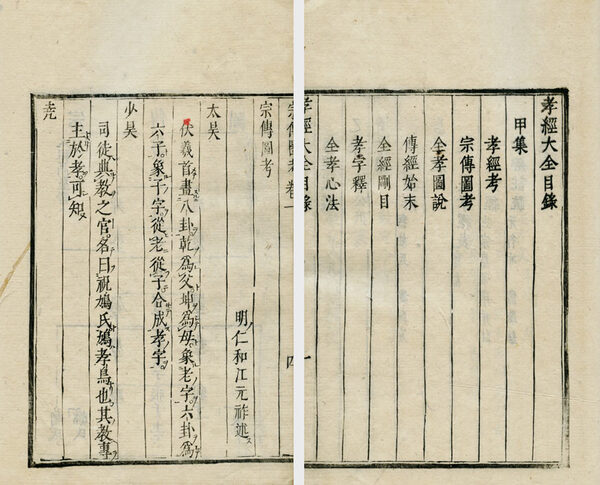 孝經大全目錄
甲集
孝經考
宗傳圖考
全孝圖說
傳經始末
全經剛目
孝字釋
全孝心法
孝經大全目錄
一
宗傳圖考卷一
四
宗傳圖考
明仁和江元祚述
太昊
伏羲首畫八卦乾爲父坤爲母象老字六卦爲
六子象子字從老從子合成孝字
少昊
司徒典教之官名曰祝鳩氏鳩孝鳥也其教專
主於孝可知
尭